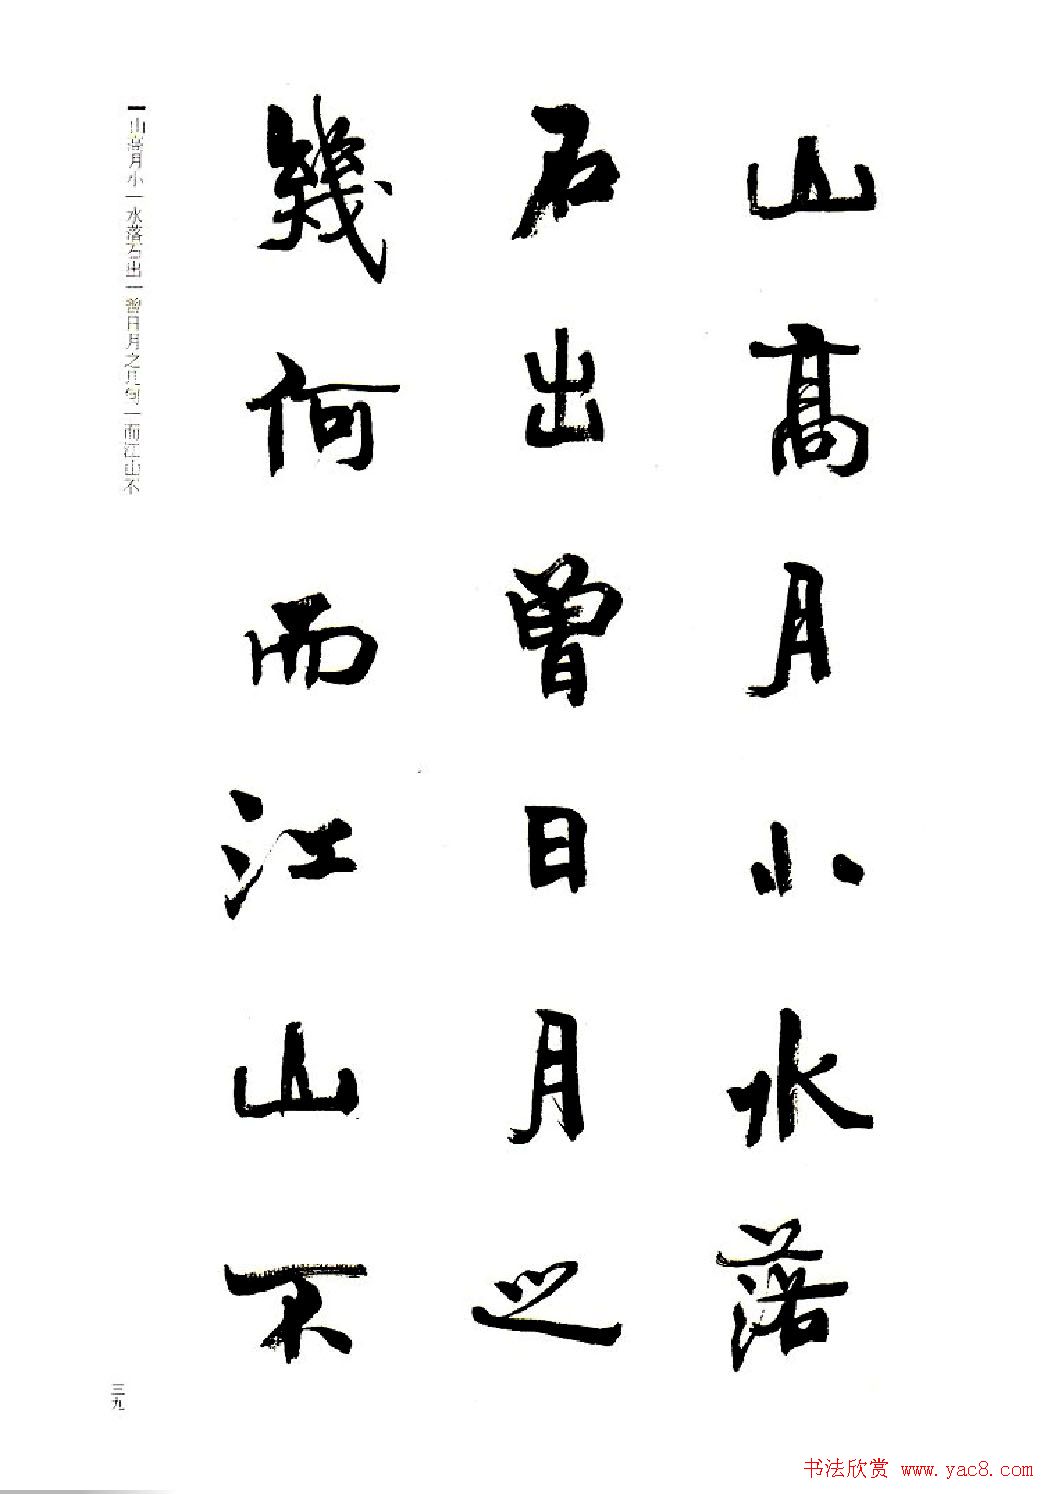 山高月小水落
石出曾日月之
幾何而江山不
山高月小｜水落石出｜曾日月之几何｜而江山不
三九
书法欣赏 www.yac8.com